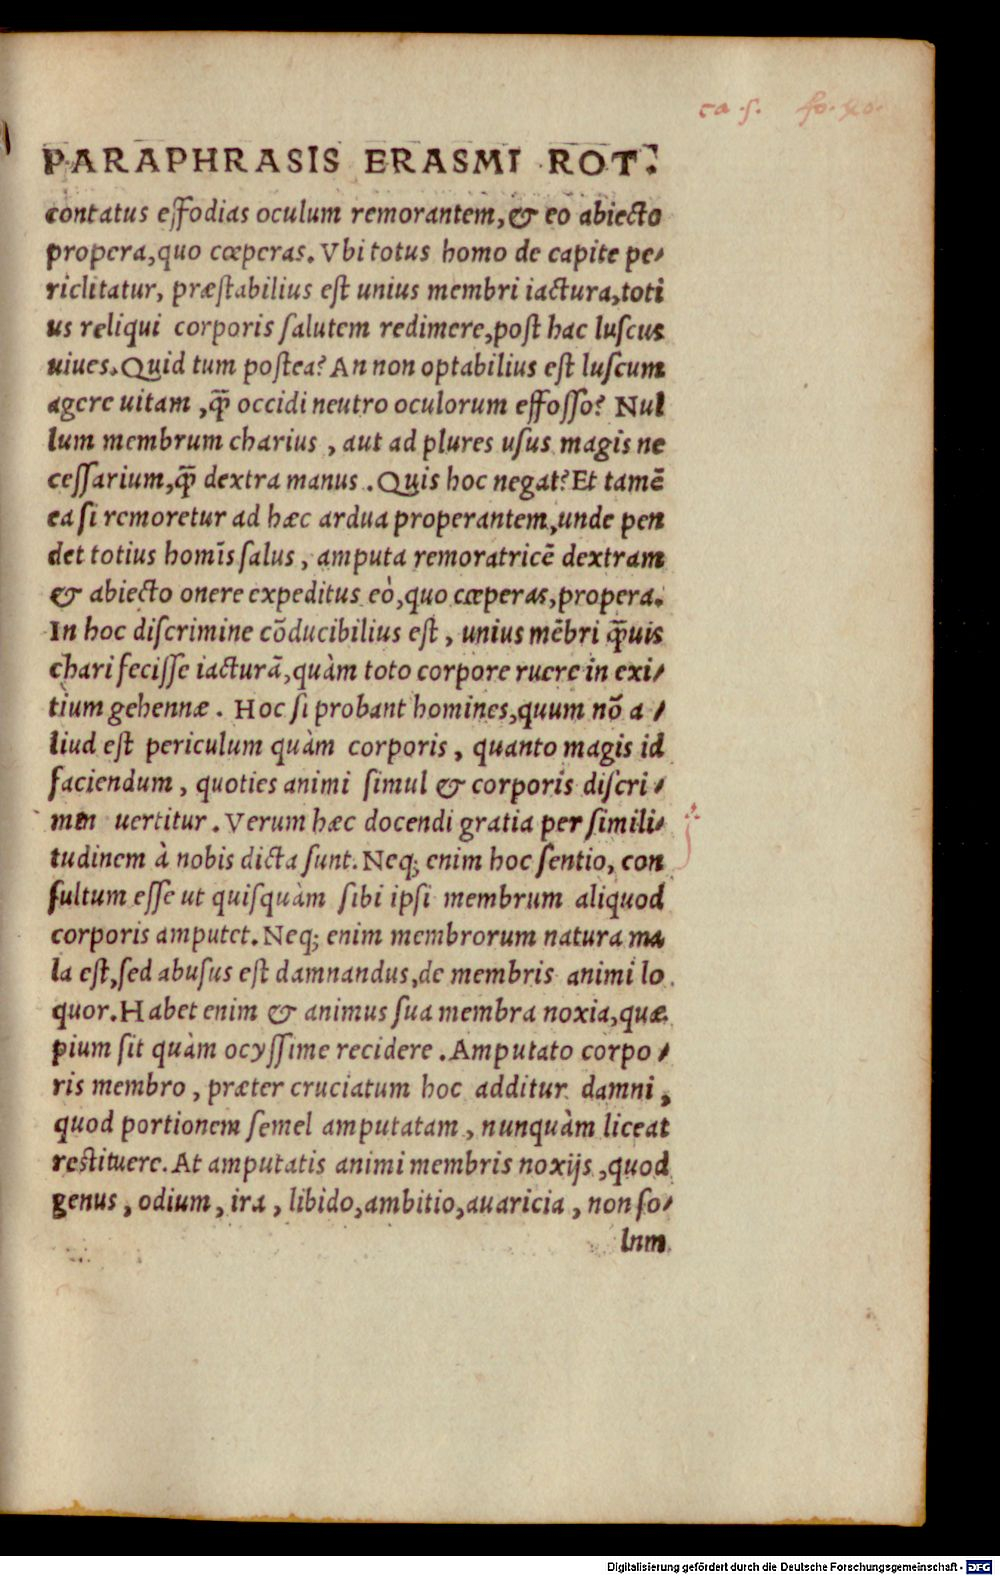 ca .5. fo. 40.
PARAPHRASIS ERASMI ROT.
contatus effodias oculum remorantem, & eo abiecto
propera, quo cœperas. Vbi totus homo de capite pe-
riclitatur, præstabilius est unius membri iactura, toti
us reliqui corporis salutem redimere, post hac luscus
uiues. Quid tum postea? An non optabilius est luscum
agere uitam, q̃ occidi neutro oculorum effosso? Nul
lum membrum charius, aut ad plures usus magis ne
cessarium, q̃ dextra manus. Quis hoc negat? Et tamẽ
ea si remoretur ad hæc ardua properantem, unde pen
det totius homĩs salus, amputa remoratricẽ dextram
& abiecto onere expeditus eò, quo cœperas, propera.
In hoc discrimine cõducibilius est, unius mẽbri q̃uis
chari fecisse iacturã, quàm toto corpore ruere in exi-
tium gehennæ. Hoc si probant homines, quum nõ a-
liud est periculum quàm corporis, quanto magis id
faciendum, quoties animi simul & corporis discri-
men uertitur. Verum hæc docendi gratia per simili-
tudinem à nobis dicta sunt. Neq; enim hoc sentio, con
sultum esse ut quisquàm sibi ipsi membrum aliquod
corporis amputet. Neq; enim membrorum natura ma
la est, sed abusus est damnandus, de membris animi lo
quor. Habet enim & animus sua membra noxia, quæ
pium sit quàm ocyssime recidere. Amputato corpo-
ris membro, præter cruciatum hoc additur damni,
quod portionem semel amputatam, nunquàm liceat
restituere. At amputatis animi membris noxijs, quod
genus, odium, ira, libido, ambitio, auaricia, non so-
lum
Digitalisierung gefördert durch die Deutsche Forschungsgemeinschaft - DFG